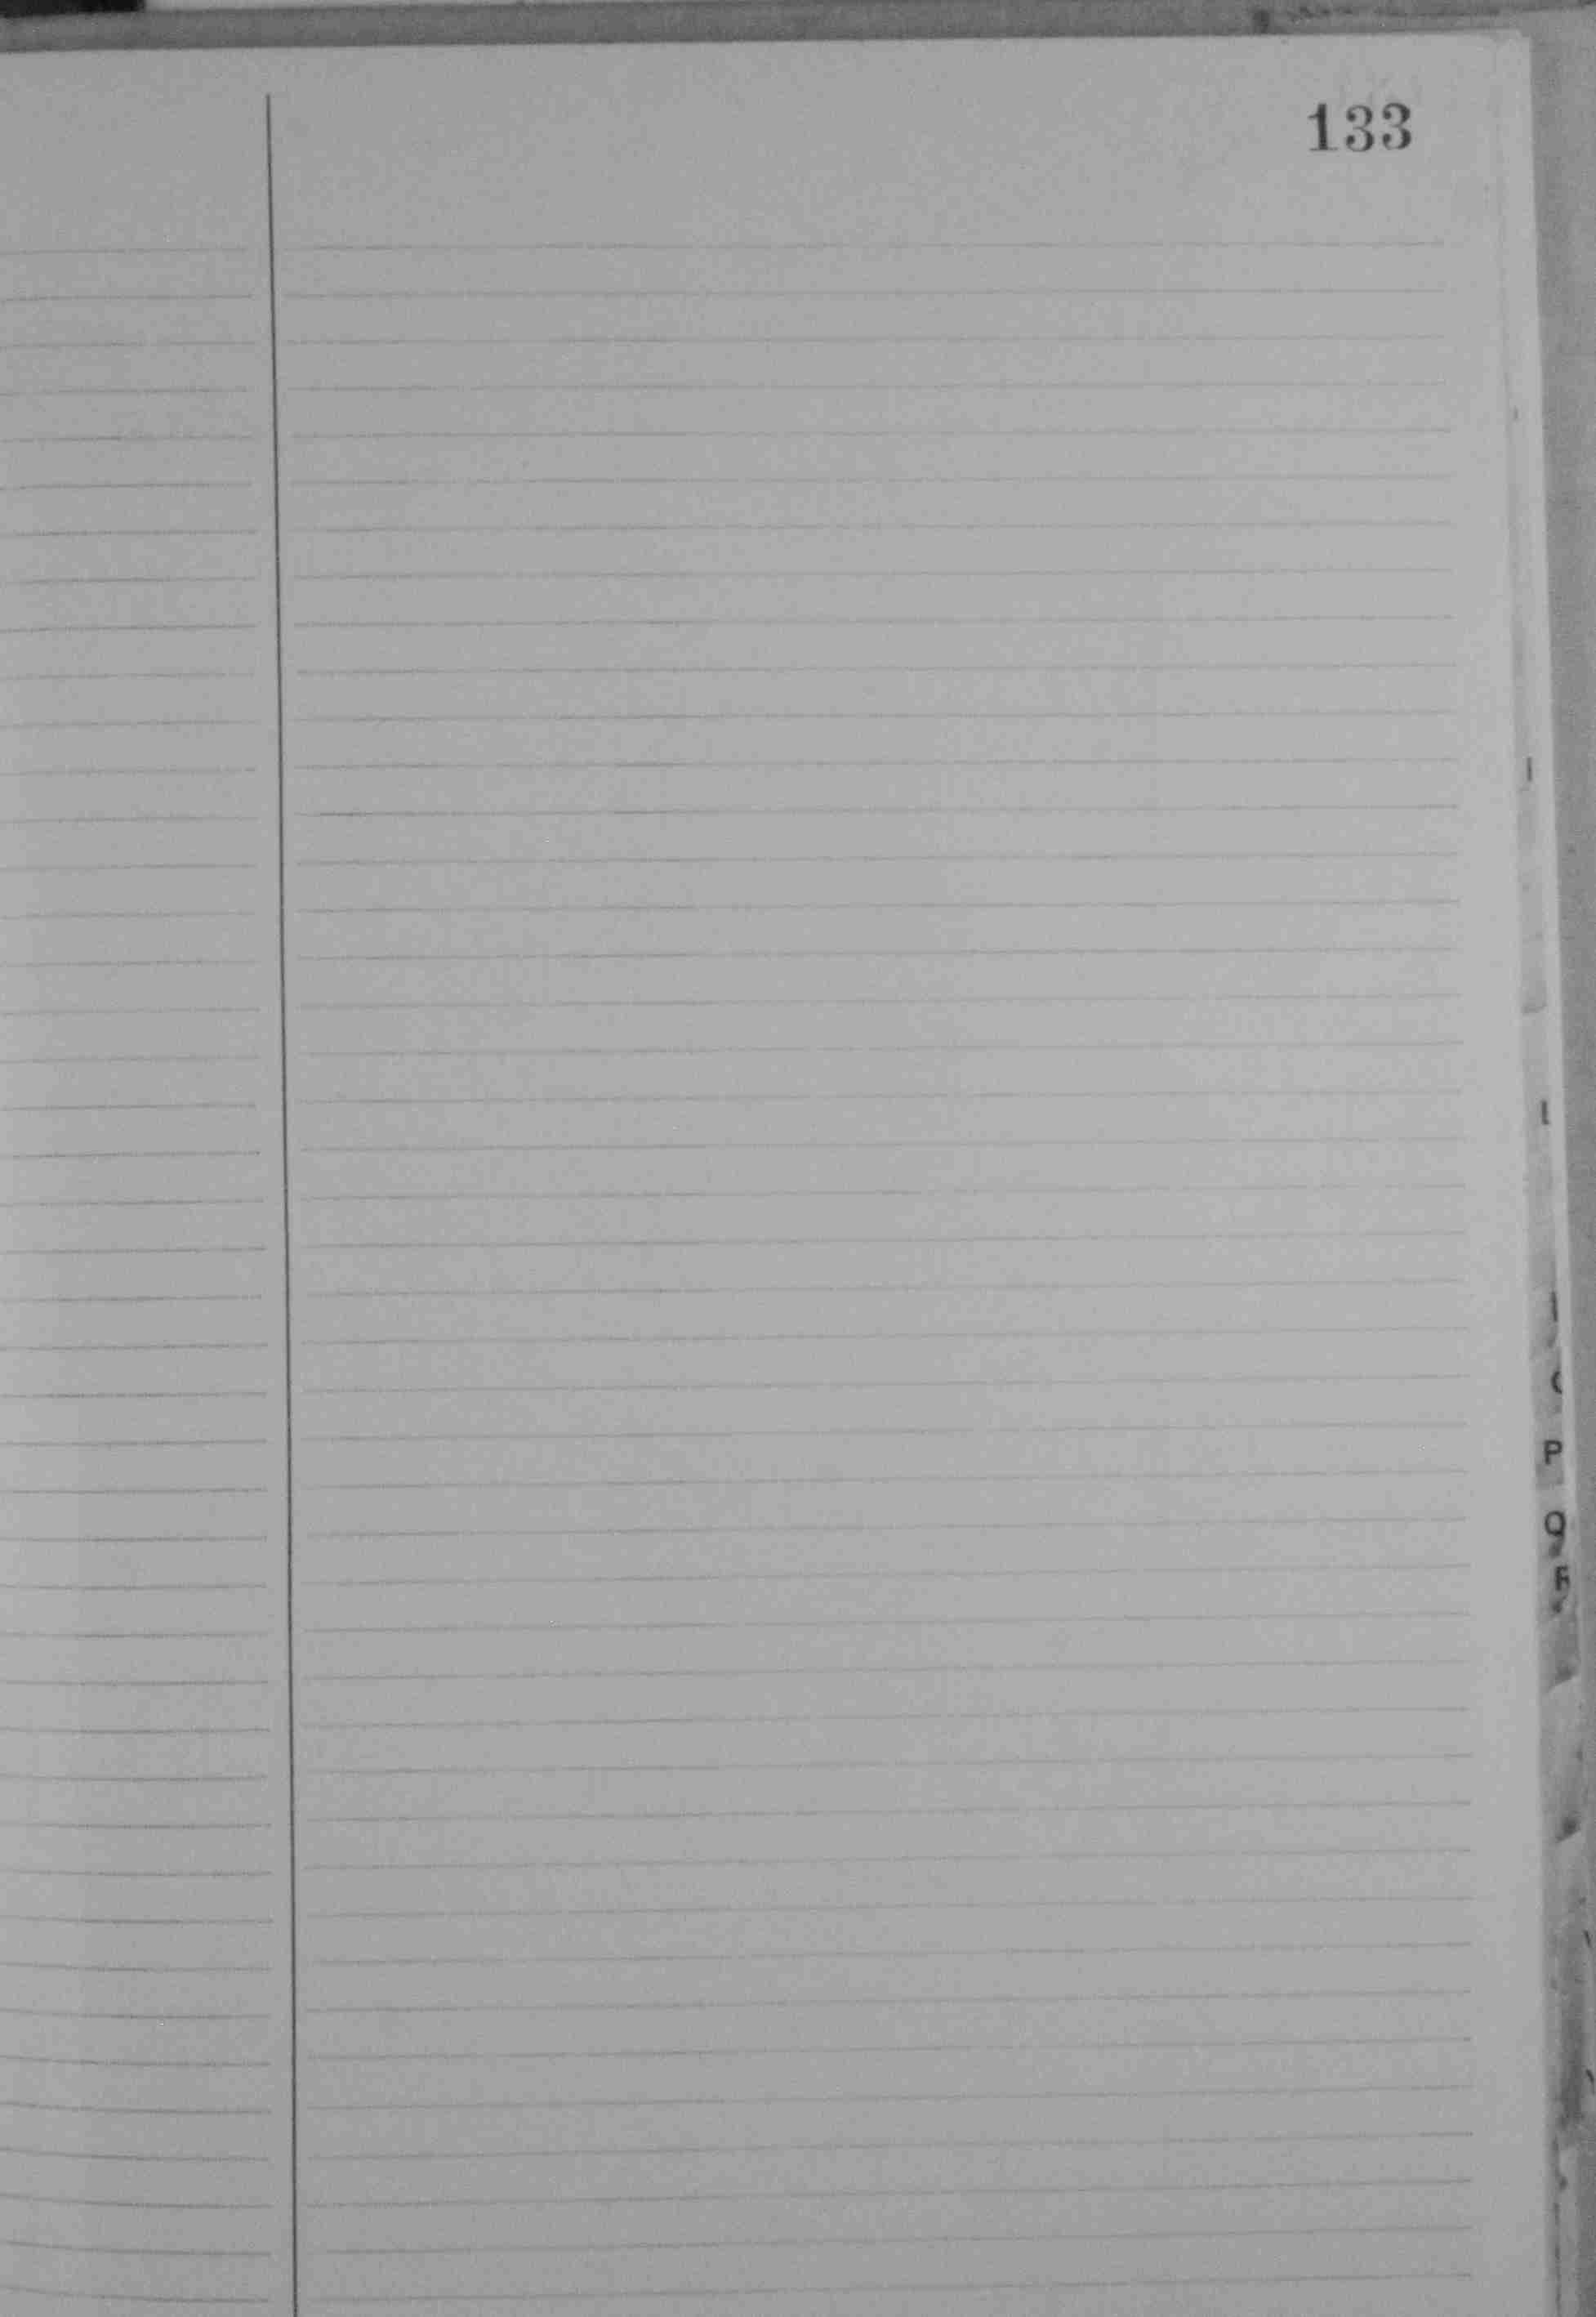 133
P
Q
R